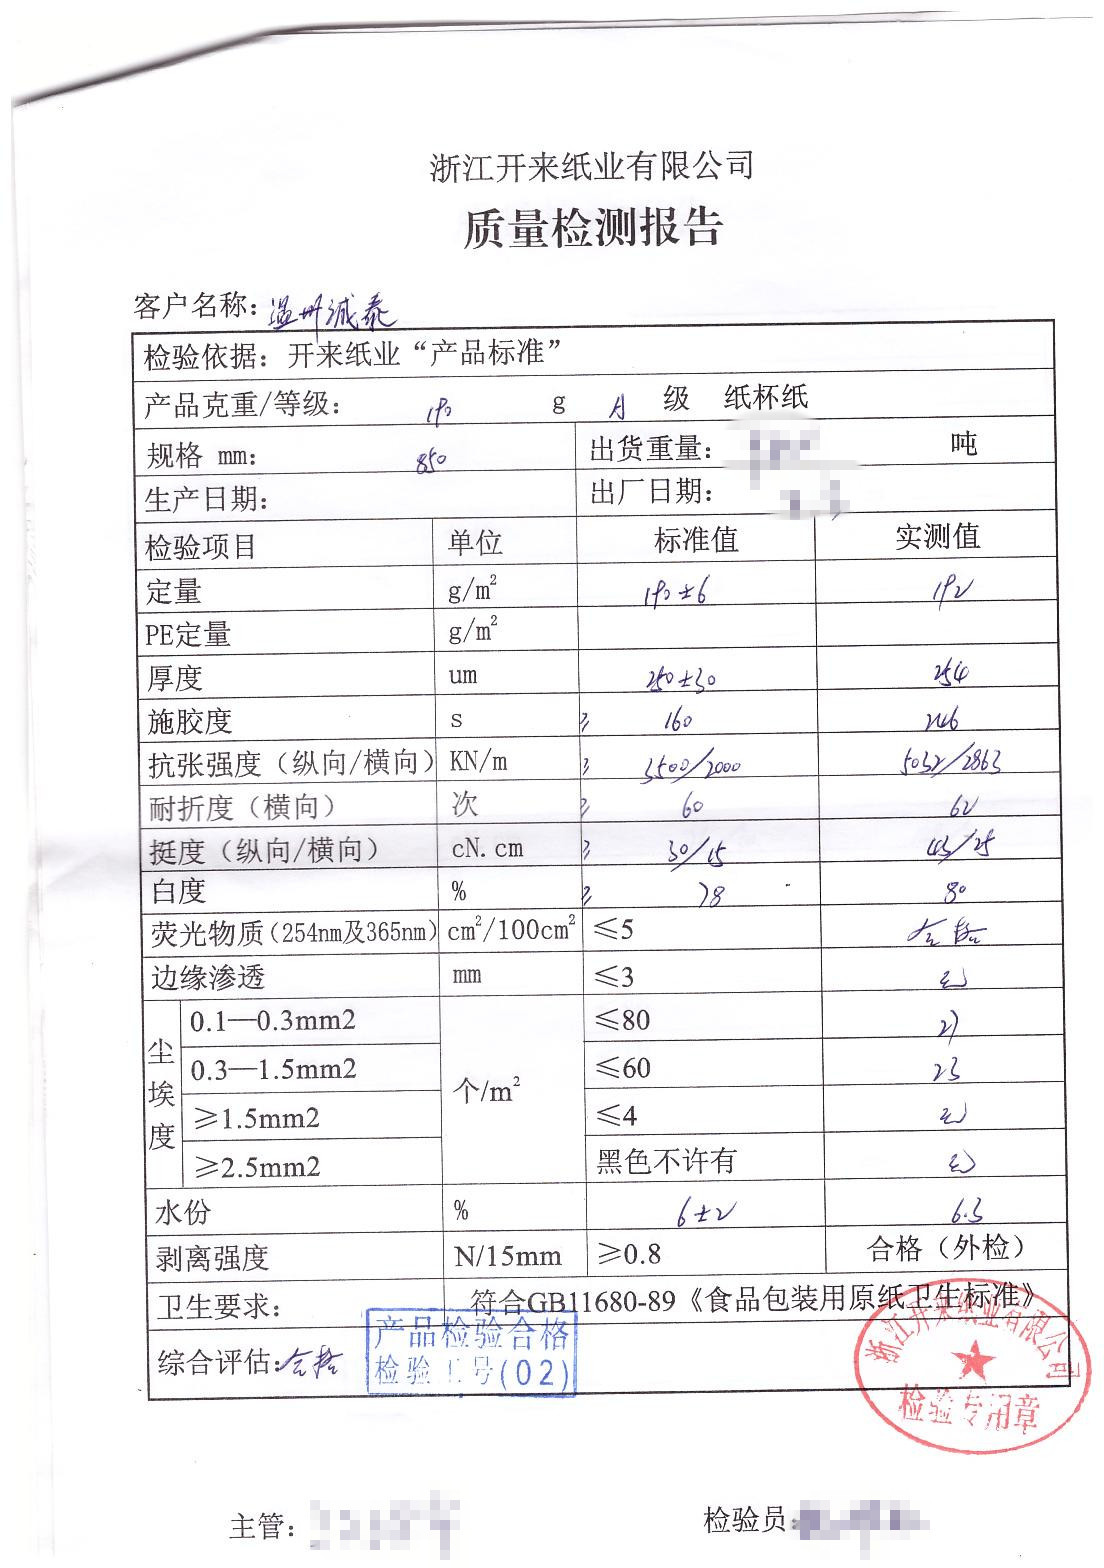 浙江开来纸业有限公司
质量检测报告
客户名称：温州诚泰
检验依据：开来纸业“产品标准”
产品克重/等级： 190 g A 级 纸杯纸
规格 mm： 850 出货重量： 吨
生产日期： 出厂日期：
检验项目 单位 标准值 实测值
定量 g/m² 190±6 192
PE定量 g/m²
厚度 um 250±30 254
施胶度 s ≥ 160 246
抗张强度（纵向/横向） KN/m ≥ 3500/2000 5032/2863
耐折度（横向） 次 ≥ 60 62
挺度（纵向/横向） cN.cm ≥ 30/15 43/25
白度 % ≥ 78 80
荧光物质（254nm及365nm） cm²/100cm² ≤5 合格
边缘渗透 mm ≤3
尘埃度 个/m²
0.1—0.3mm2 ≤80 27
0.3—1.5mm2 ≤60 23
≥1.5mm2 ≤4
≥2.5mm2 黑色不许有
水份 % 6±2 6.3
剥离强度 N/15mm ≥0.8 合格（外检）
卫生要求： 符合GB11680-89《食品包装用原纸卫生标准》
综合评估：合格
产品检验合格
检验工号(02)
浙江开来纸业有限公司
检验专用章
主管： 检验员